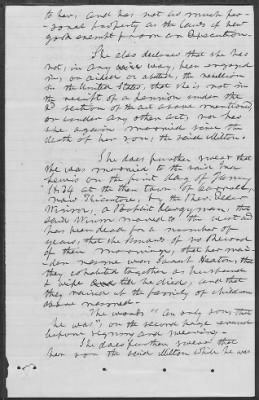 to her, and has, not as much per-
sonal property as the laws of her
exempt from an Execution.
She also declares that she has
not, in any way, been engaged
in, or aided or abetted, the rebellion
in the United States, that she is not in
the receipt of a pension under the
2d section of the act above mentioned
or under any other act, nor has
she again married since the
death of her son, the said Milton.
She does further swear that
she was married to the said
on the first day of Jany
1834 at the then town of
now by the
a Baptist clergyman, the
said moved to the West and
has been dead for a number of
years, that she knows of no Record
of their marriage, that her mai-
den name was Heaton, that
they cohabited together as husband
& wife till he died, and that
they raised up the family of children
above named.
The words "an only son that
he was", on the second page erased
before signing and swearing.
She does further swear that
her son the said Milton while he was